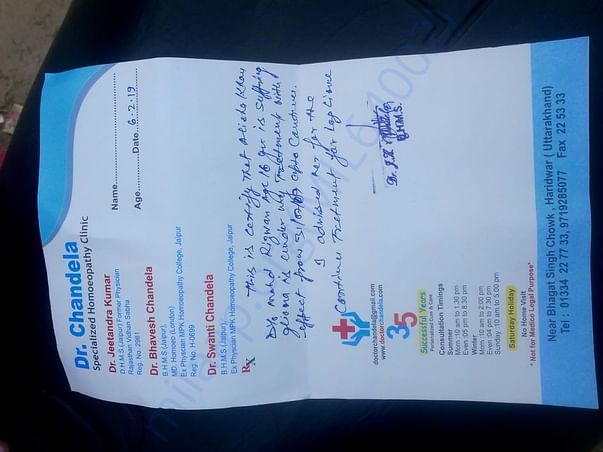 Dr. Chandela
Specialized Homoeopathy Clinic
Dr. Jeetandra Kumar
D.H.M.S. (Jaipur) Former Physician
Rajasthan Vidhan Sabha
Reg. No. 2981
Dr. Bhavesh Chandela
B.H.M.S. (Jaipur),
MD. Homoeo (London)
Ex Physician MPK Homoeopathy College, Jaipur
Reg. No. H-0699
Dr. Swanti Chandela
B.H.M.S. (Jaipur),
Ex Physician MPK Homoeopathy College, Jaipur
Name
Age Date 6-2-19
Rx
This is certify that Khan
D/o Mohd Rizwan Age 16 yrs is suffering
glioma is under my Treatment with
effect from continue.
I advised her for the
continue Treatment for Long time
Dr.
B.H.M.S.
doctorchandela@gmail.com
www.doctorchandela.com
35
Successful Years
Personalized Cure & Care
Consultation Timings
Summer
Morn :10 am to 1.30 pm
Even :05 pm to 8.30 pm
Winter
Morn :10 am to 2.00 pm
Even :04 pm to 7.30 pm
Sunday :10 am to 5.00 pm
Saturday Holiday
No Home Visit
* Not for Medico Legal Purpose*
Near Bhagat Singh Chowk, Haridwar ( Uttarakhand)
Tel : 01334 22 77 33, 9719285077 Fax 22 53 33